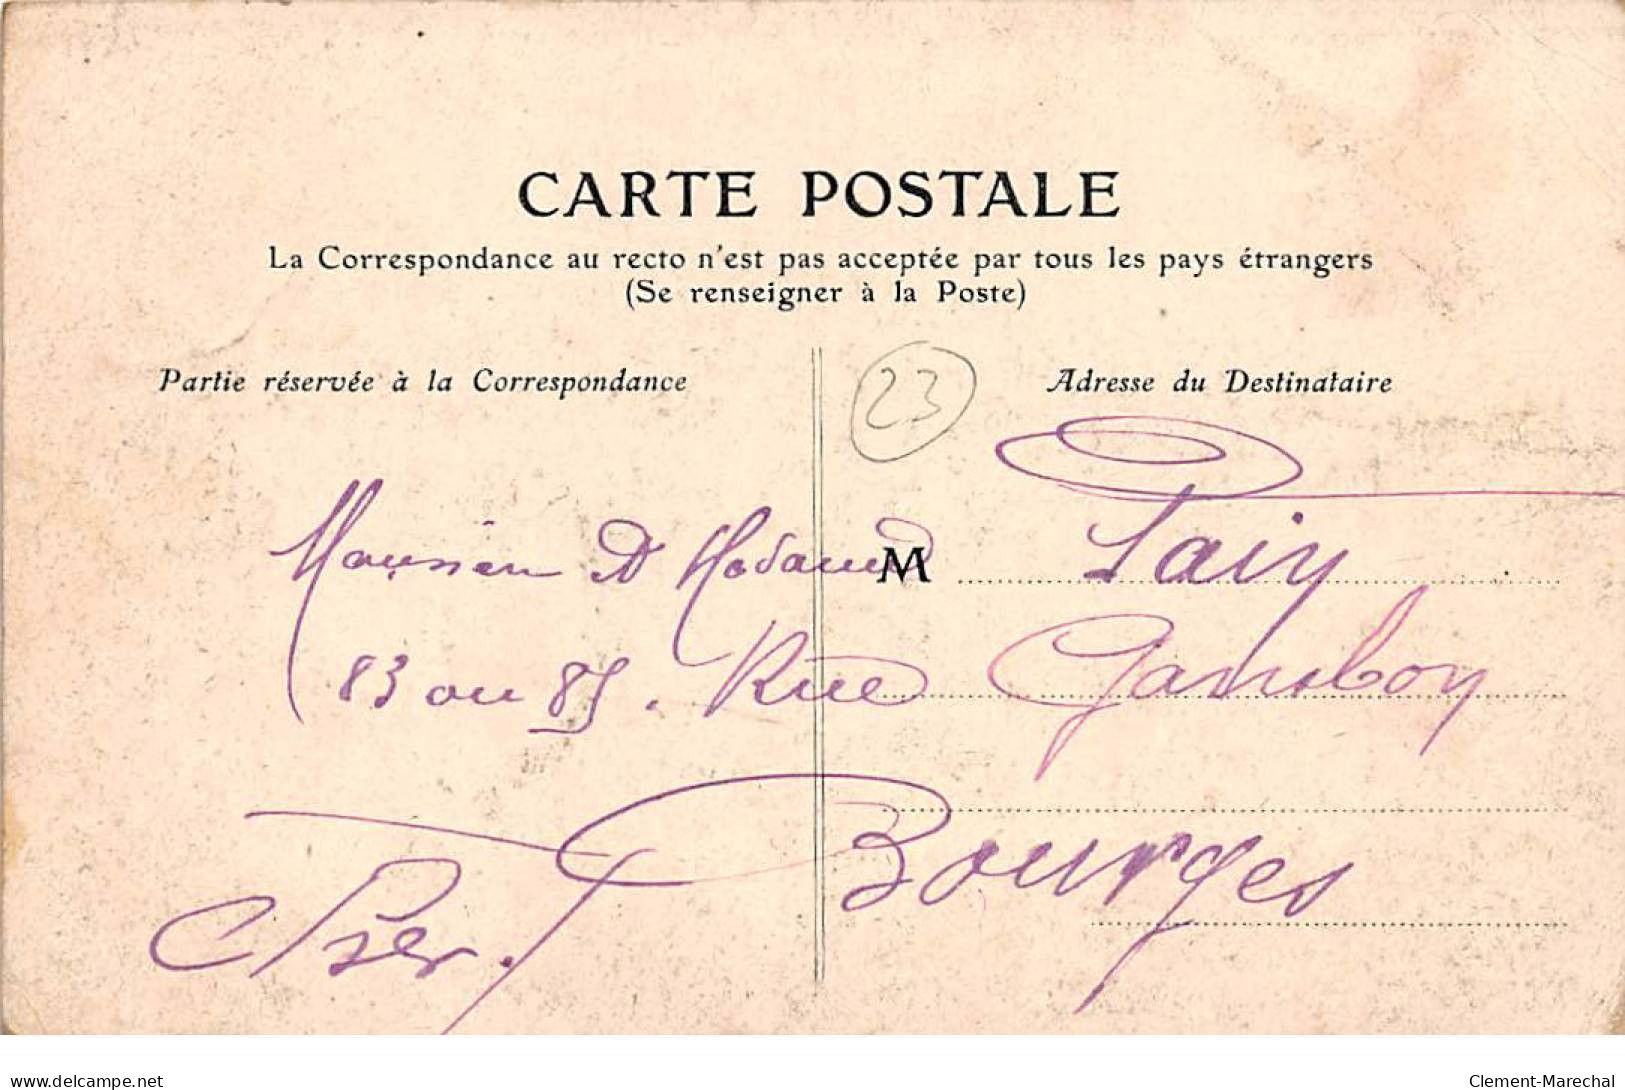 CARTE POSTALE
La Correspondance au recto n'est pas acceptée par tous les pays étrangers
(Se renseigner à la Poste)
Partie réservée à la Correspondance
23
Adresse du Destinataire
M
83 ou 85. Rue
Bourges
delcampe.net
Clement-Marechal